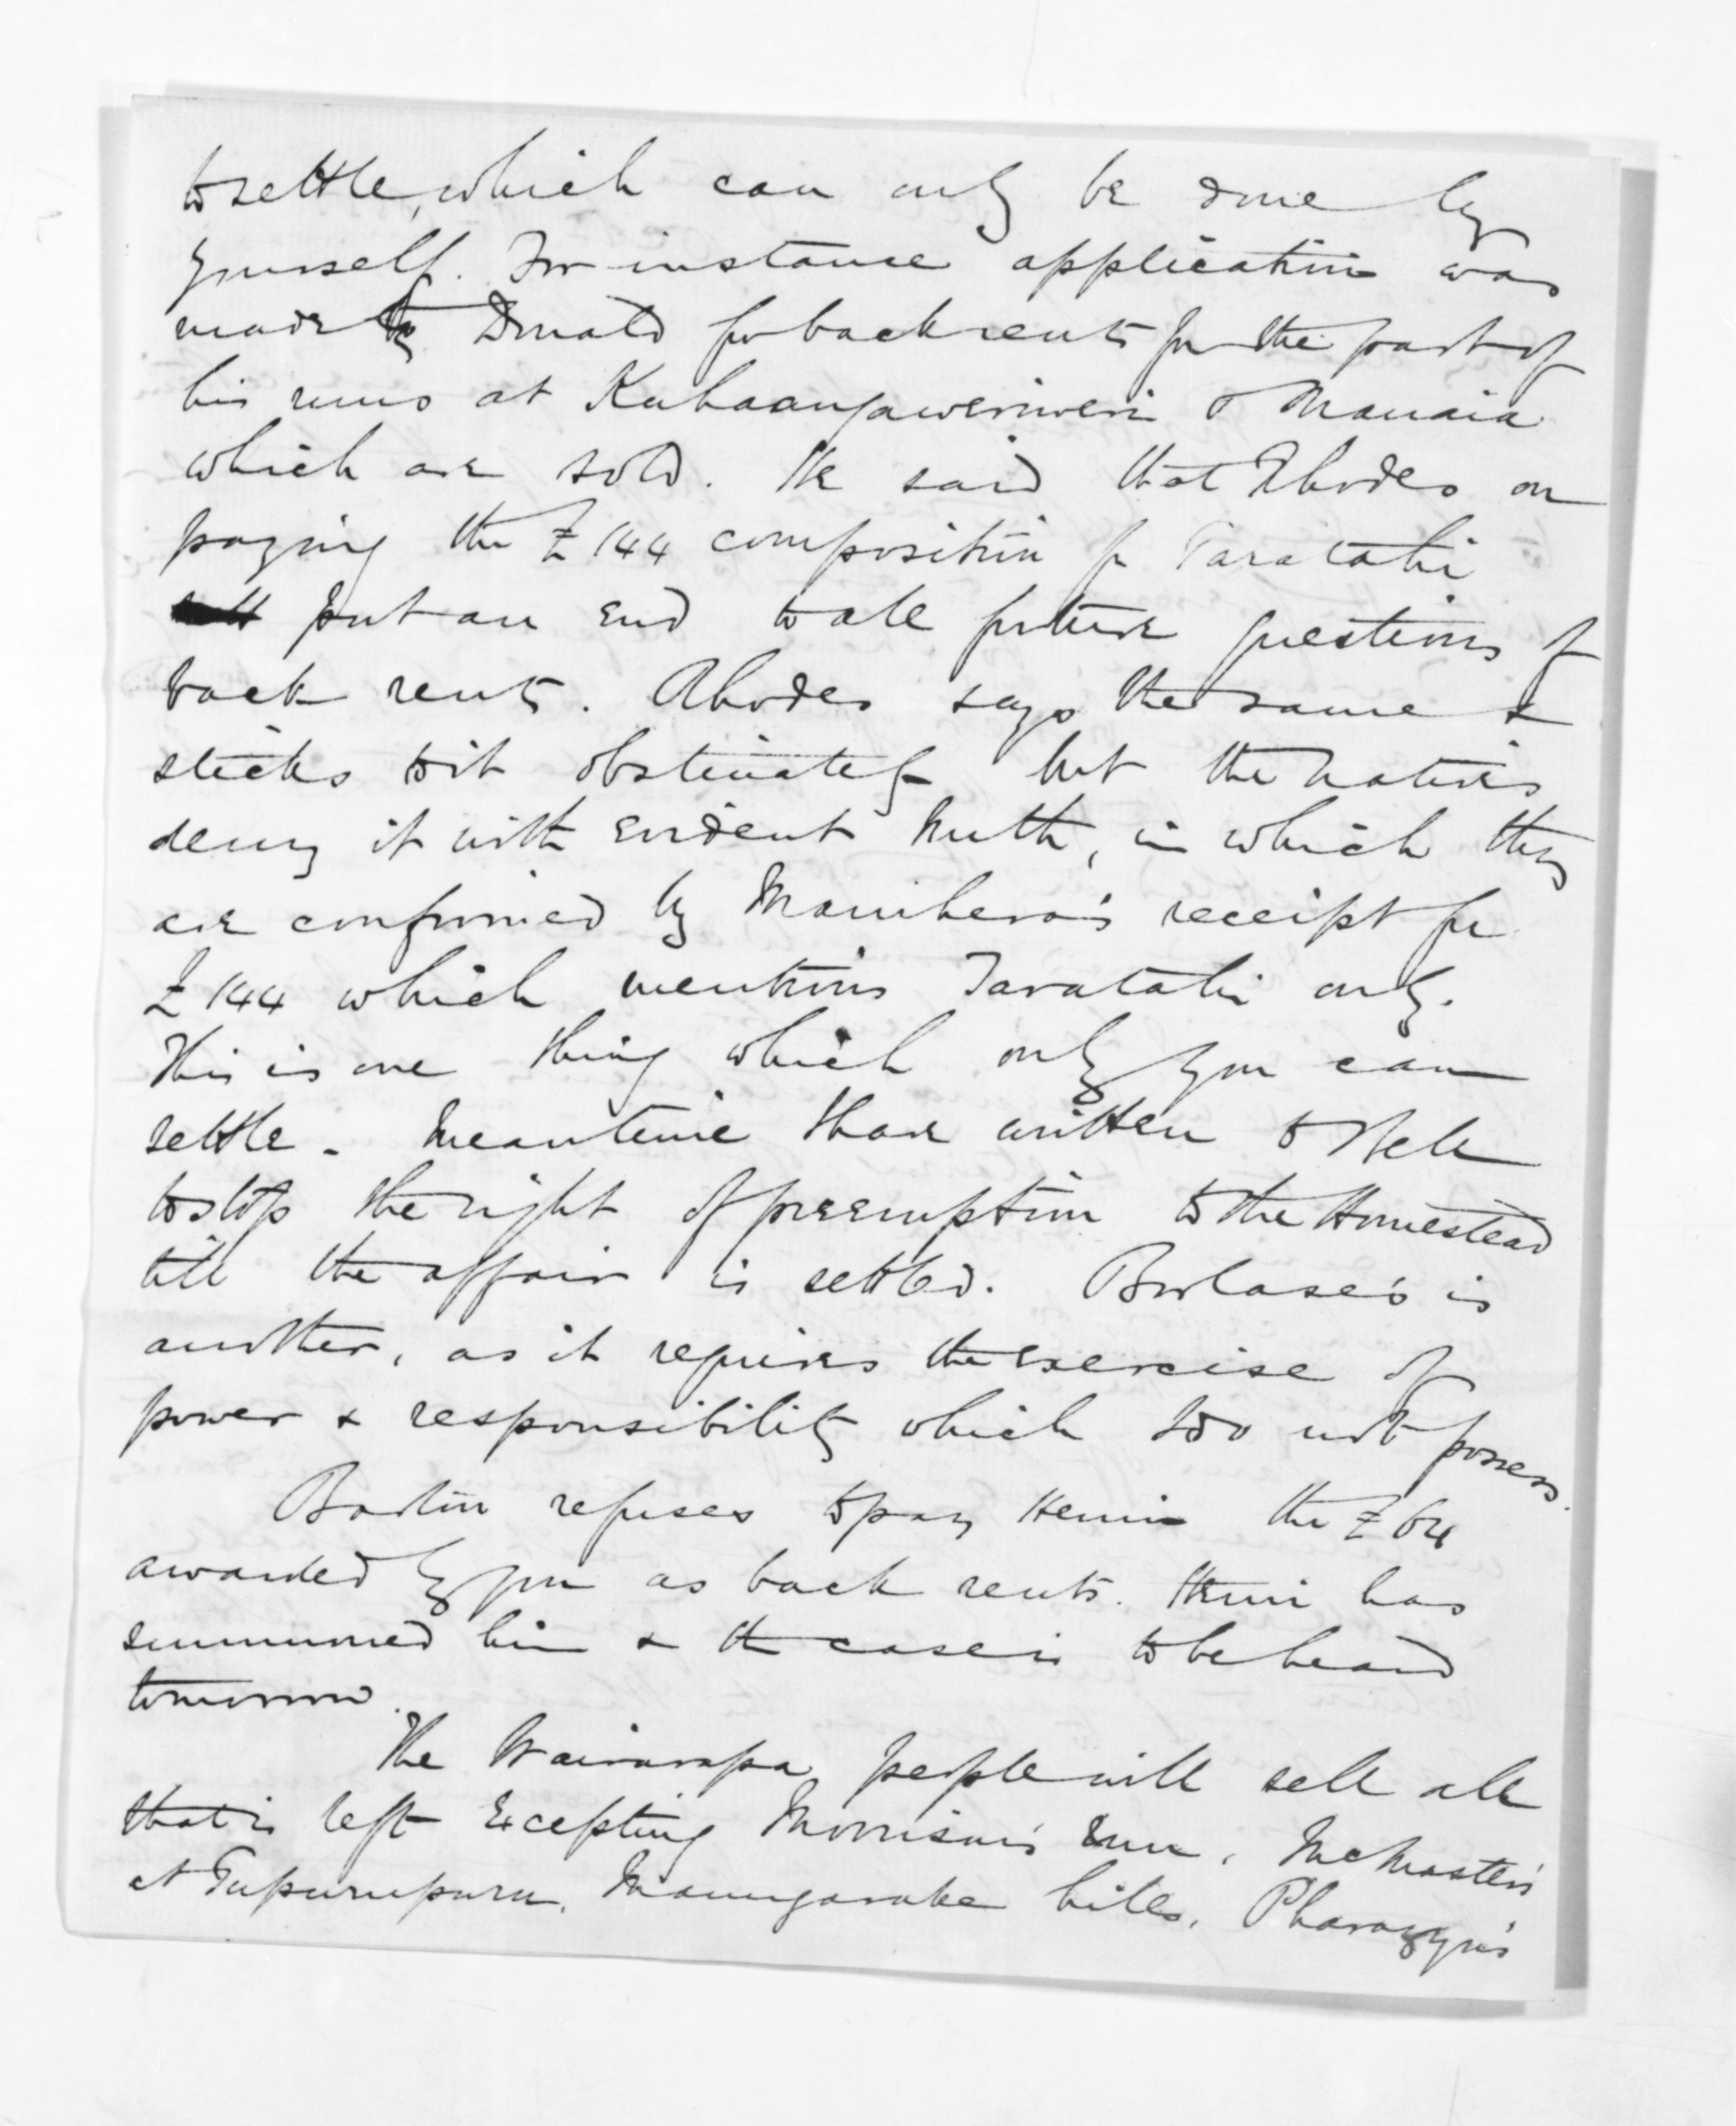 to settle, which can only be done by
yourself. For instance application was
made to Donald for back rents for the part of
his runs at Kuhaangaweriweri & Manaia
which are sold. He said that Rhodes on
paying the £144 composition for Taratahi
put an end to all future questions of
back rents. Rhodes says the same &
sticks to it obstinately but the natives
deny it with evident truth, in which they
are confirmed by Manihera's receipt for
£144 which mentions Taratahi only.
This is one thing which only you can
settle. Meantime I have written to Bell
to stop the right of preemption to the Homestead
till the affair is settled. Borlase's is
another, as it requires the exercise of
power & responsibility which I do not possess.
refuses to pay Hemi the £64
awarded by you as back rents. Hemi has
summoned him & the case is to be heard
tomorrow.
The Wairarapa people will sell all
that is left excepting Morrison's run, McMaster's
at Tupurupuru, Maungarake hills, Pharazyn's